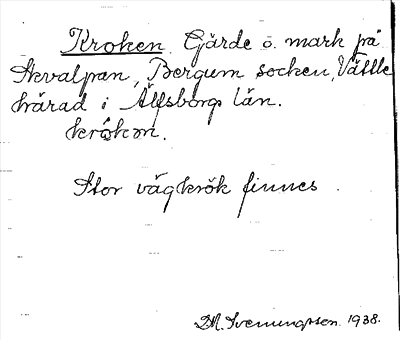 Kroken Gärde o. mark på
Skvalpan, Bergum socken, Vättle
härad i Älfsborgs län.
krókən.
Stor vägkrök finnes.
D.A. Svenungsson. 1938.